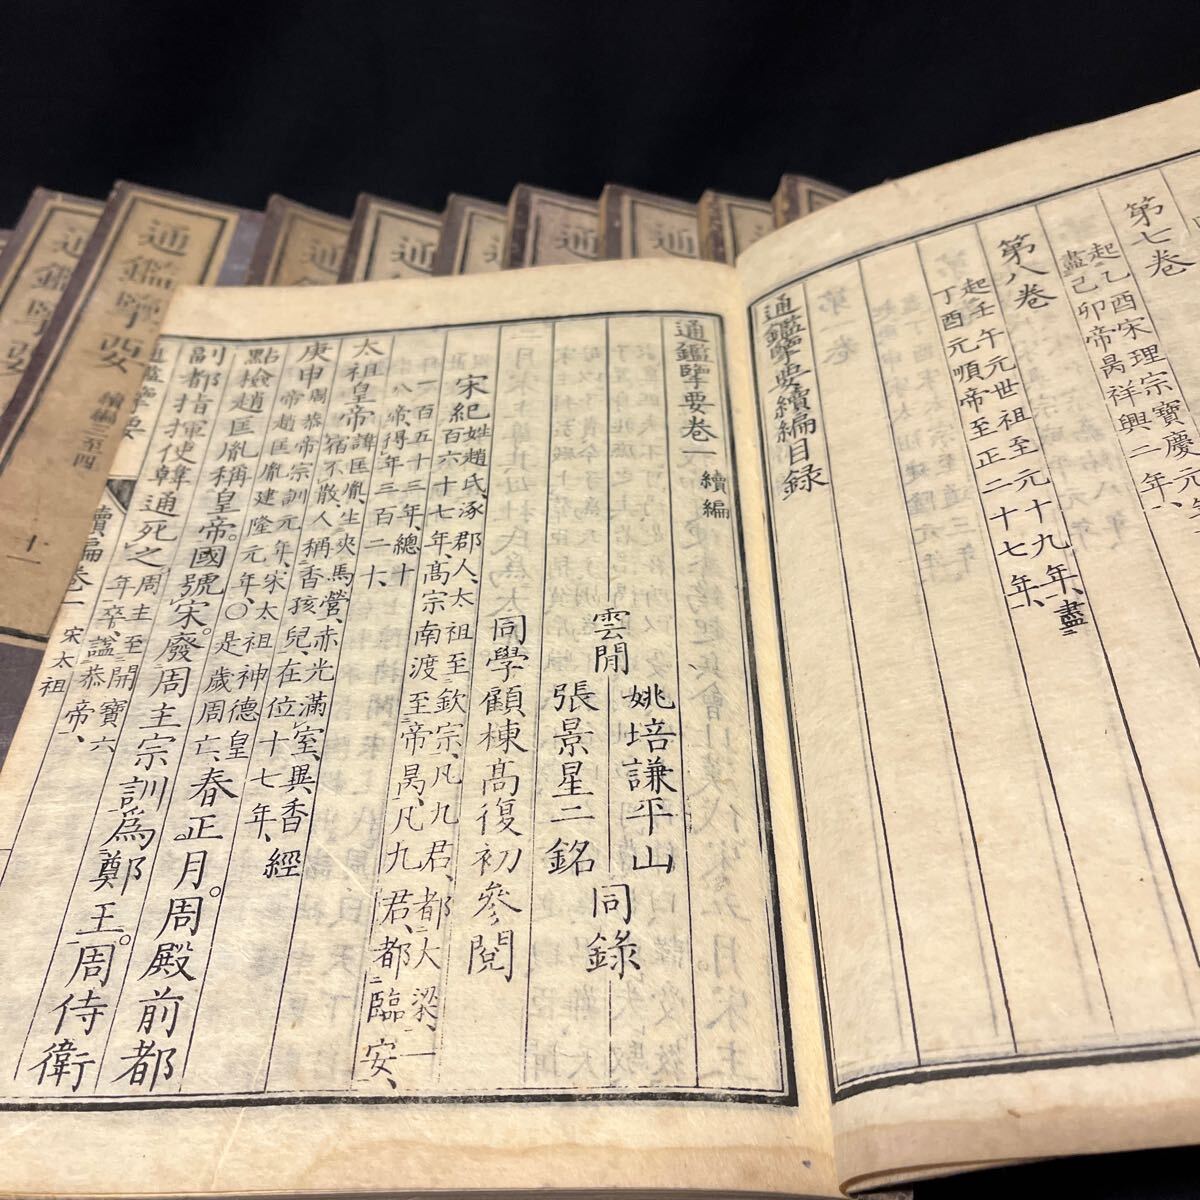 第七卷
起乙酉宋理宗寶慶元年、
盡己卯帝昺祥興二年、
第八卷
起壬午元世祖至元十九年、盡
丁酉元順帝至正二十七年、
通鑑擥要續編目録
通鑑擥要卷一 續編
姚培謙平山
雲閒
張景星二銘
同錄
同學顧棟高復初參閱
宋紀姓趙氏、涿郡人、太祖至欽宗、凡九君、都大梁、一
百六十七年、高宗南渡至帝昺、凡九君、都臨安、
一百五十三年、總十
八帝、得年三百二十、
太祖皇帝諱匡胤、生夾馬營、赤光滿室、異香經
宿不散、人稱香孩兒、在位十七年、
庚申周恭帝宗訓元年、宋太祖神德皇
帝趙匡胤建隆元年、〇是歲周亡、春正月。周殿前都
點檢趙匡胤稱皇帝。國號宋。廢周主宗訓爲鄭王。周侍衛
副都指揮使韓通死之、周主至開寶六
年卒、謚恭帝、
通鑑擥要
續編卷一
宋太祖
通鑑擥要
續編三至四
十一
通鑑擥要